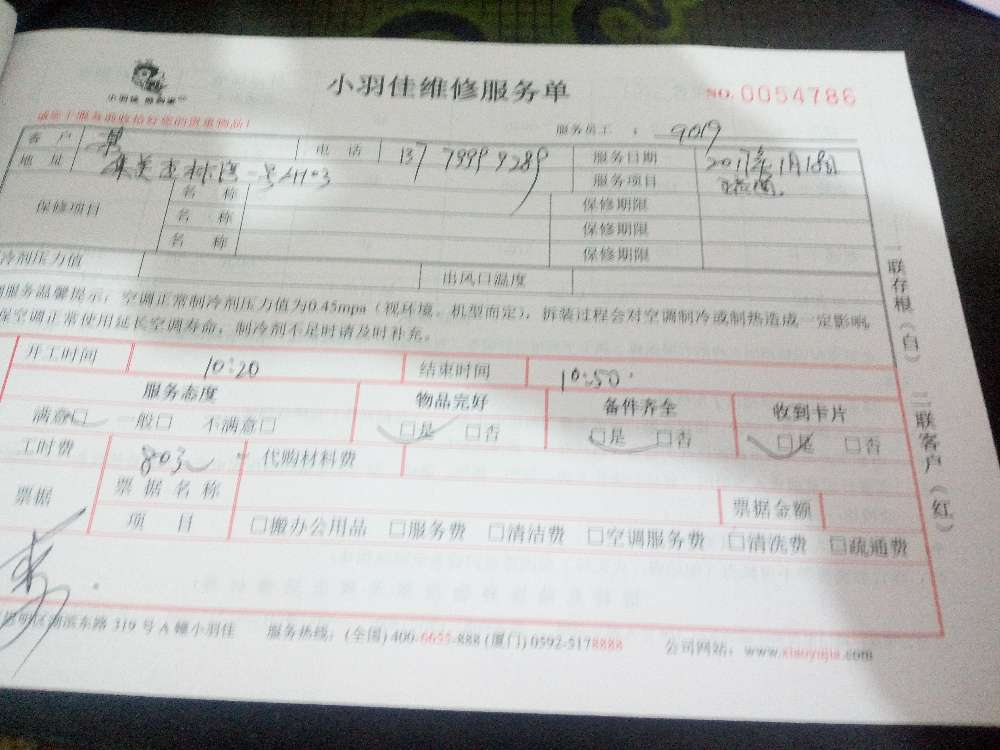 小羽佳维修服务单
NO.0054786
服务员工 : 9019
客户 电话 137 7999 9289 服务日期 2017年1月18日
地址 服务项目
保修项目 名称 保修期限
名称 保修期限
名称 保修期限
冷剂压力值 出风口温度
服务温馨提示:空调正常制冷剂压力值为0.45mpa(视环境。机型而定),拆装过程会对空调制冷或制热造成一定影响
保空调正常使用延长空调寿命,制冷剂不足时请及时补充。
开工时间 10:20 结束时间 10:50
服务态度 物品完好 备件齐全 收到卡片
满意□ 一般□ 不满意□ □是 □否 □是 □否 □是 □否
工时费 代购材料费
票据 票据名称 票据金额
项目 □搬办公用品 □服务费 □清洁费 □空调服务费 □清洗费 □疏通费
一联存根(白) 二联客户(红)
湖滨东路 319 号 A 幢小羽佳 服务热线:(全国) 400-6655-888 (厦门) 0592-5178888 公司网站:www.xiaoyujia.com